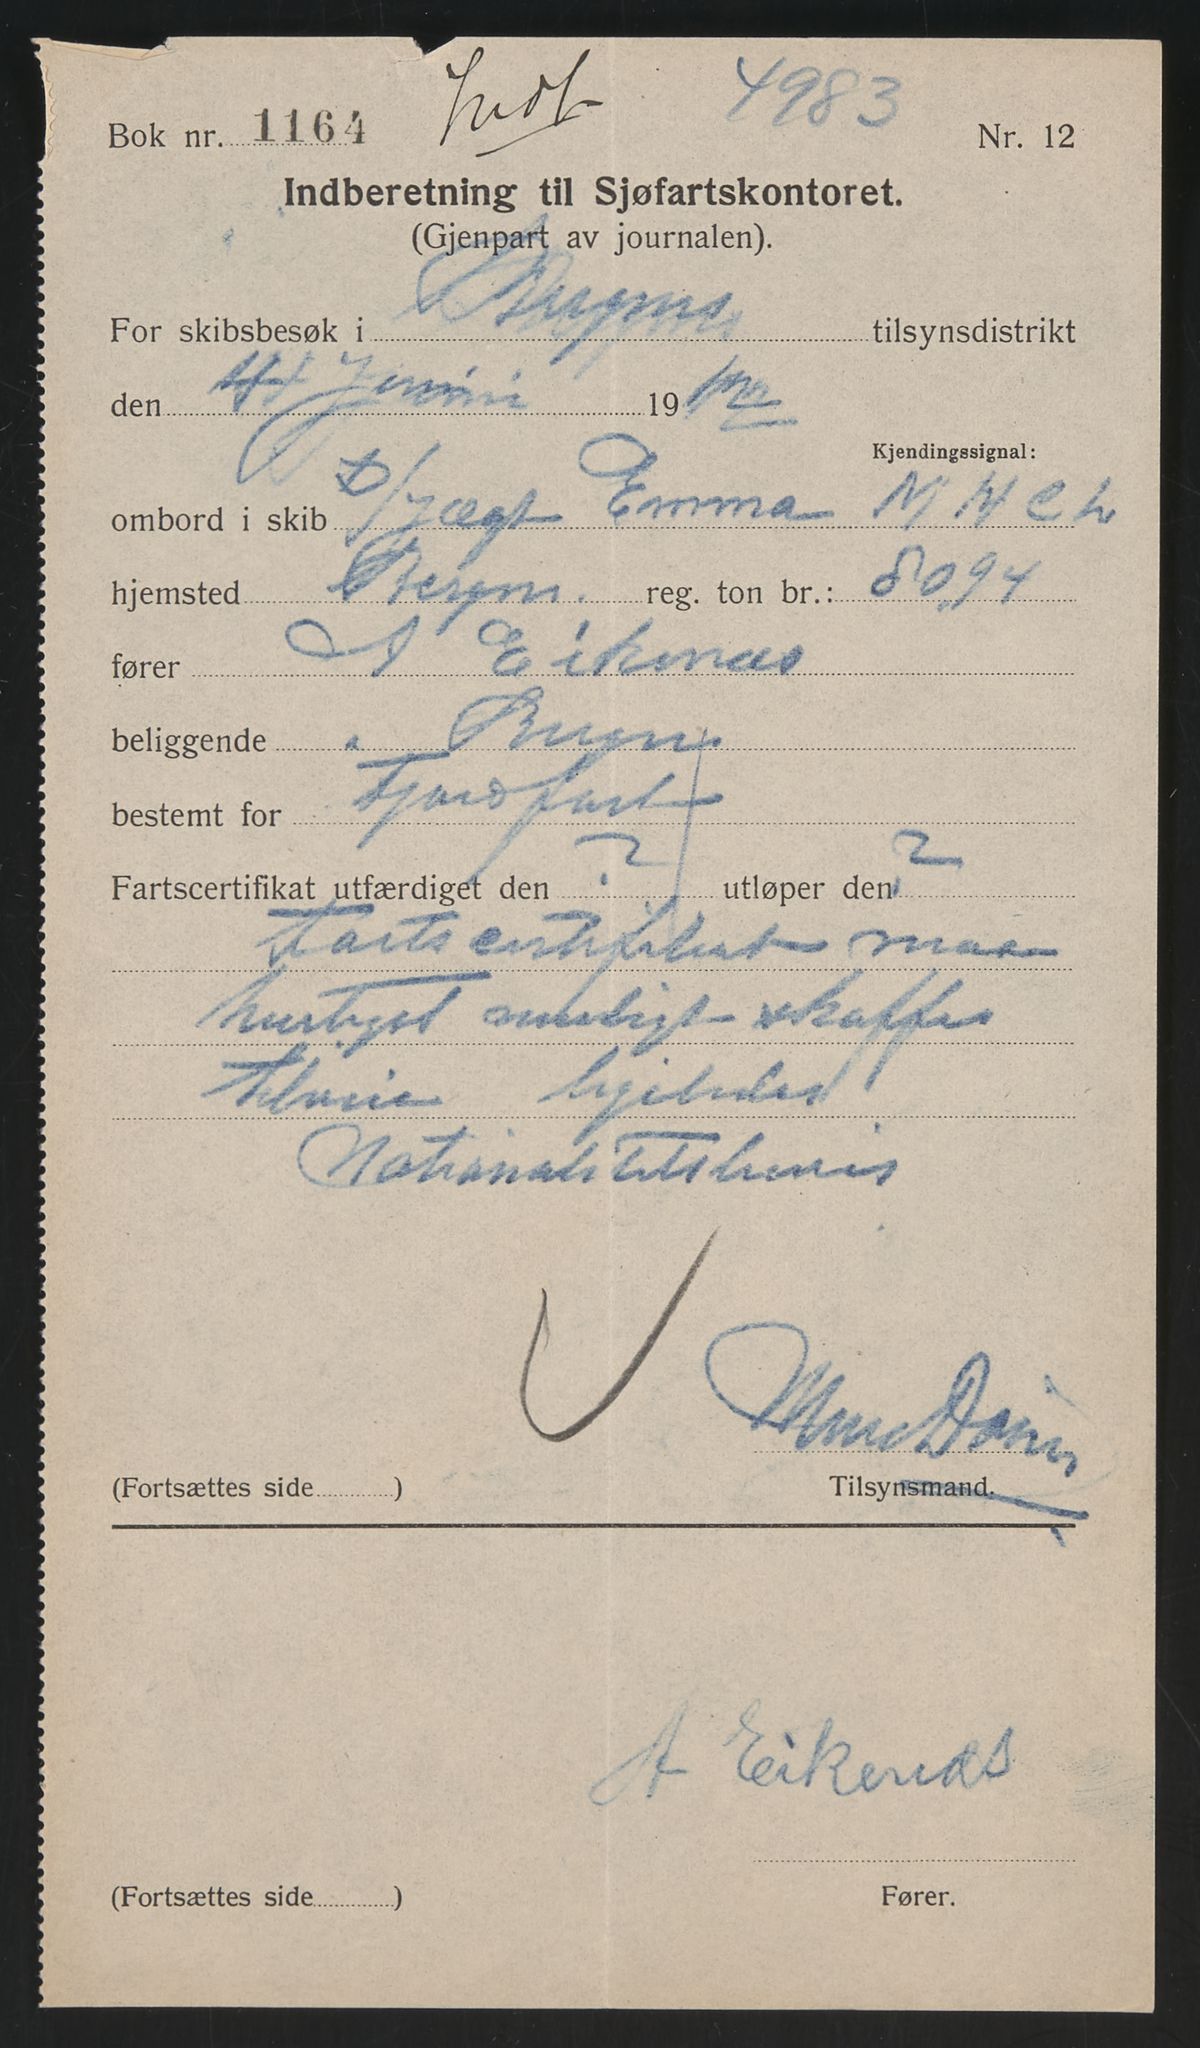 4983
Bok nr. 1164 Indb Nr. 12
Indberetning til Sjøfartskontoret.
(Gjenpart av journalen).
For skibsbesøk i Bergens tilsynsdistrikt
den Juni 19
Kjendingssignal:
ombord i skib D/jægt Emma M H C L
hjemsted Bergen. reg. ton br.: 80,94
fører A Eikenæs
beliggende " Bergen
bestemt for Fjordfart
Fartscertifikat utfærdiget den ? utløper den ?
Fartscertifikat maa
hurtigst muligt skaffes
Nationalitetsbevis
(Fortsættes side ) Tilsynsmand.
A Eikenæs
(Fortsættes side ) Fører.